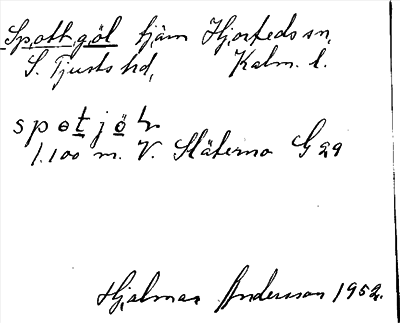 Spottgöl tjäm Hjorteds sn,
S. Tjusts hd, Kalm. l.
spotjöl
1.100 m. V. Släterna G 29
Hjalmar Andersson 1952.